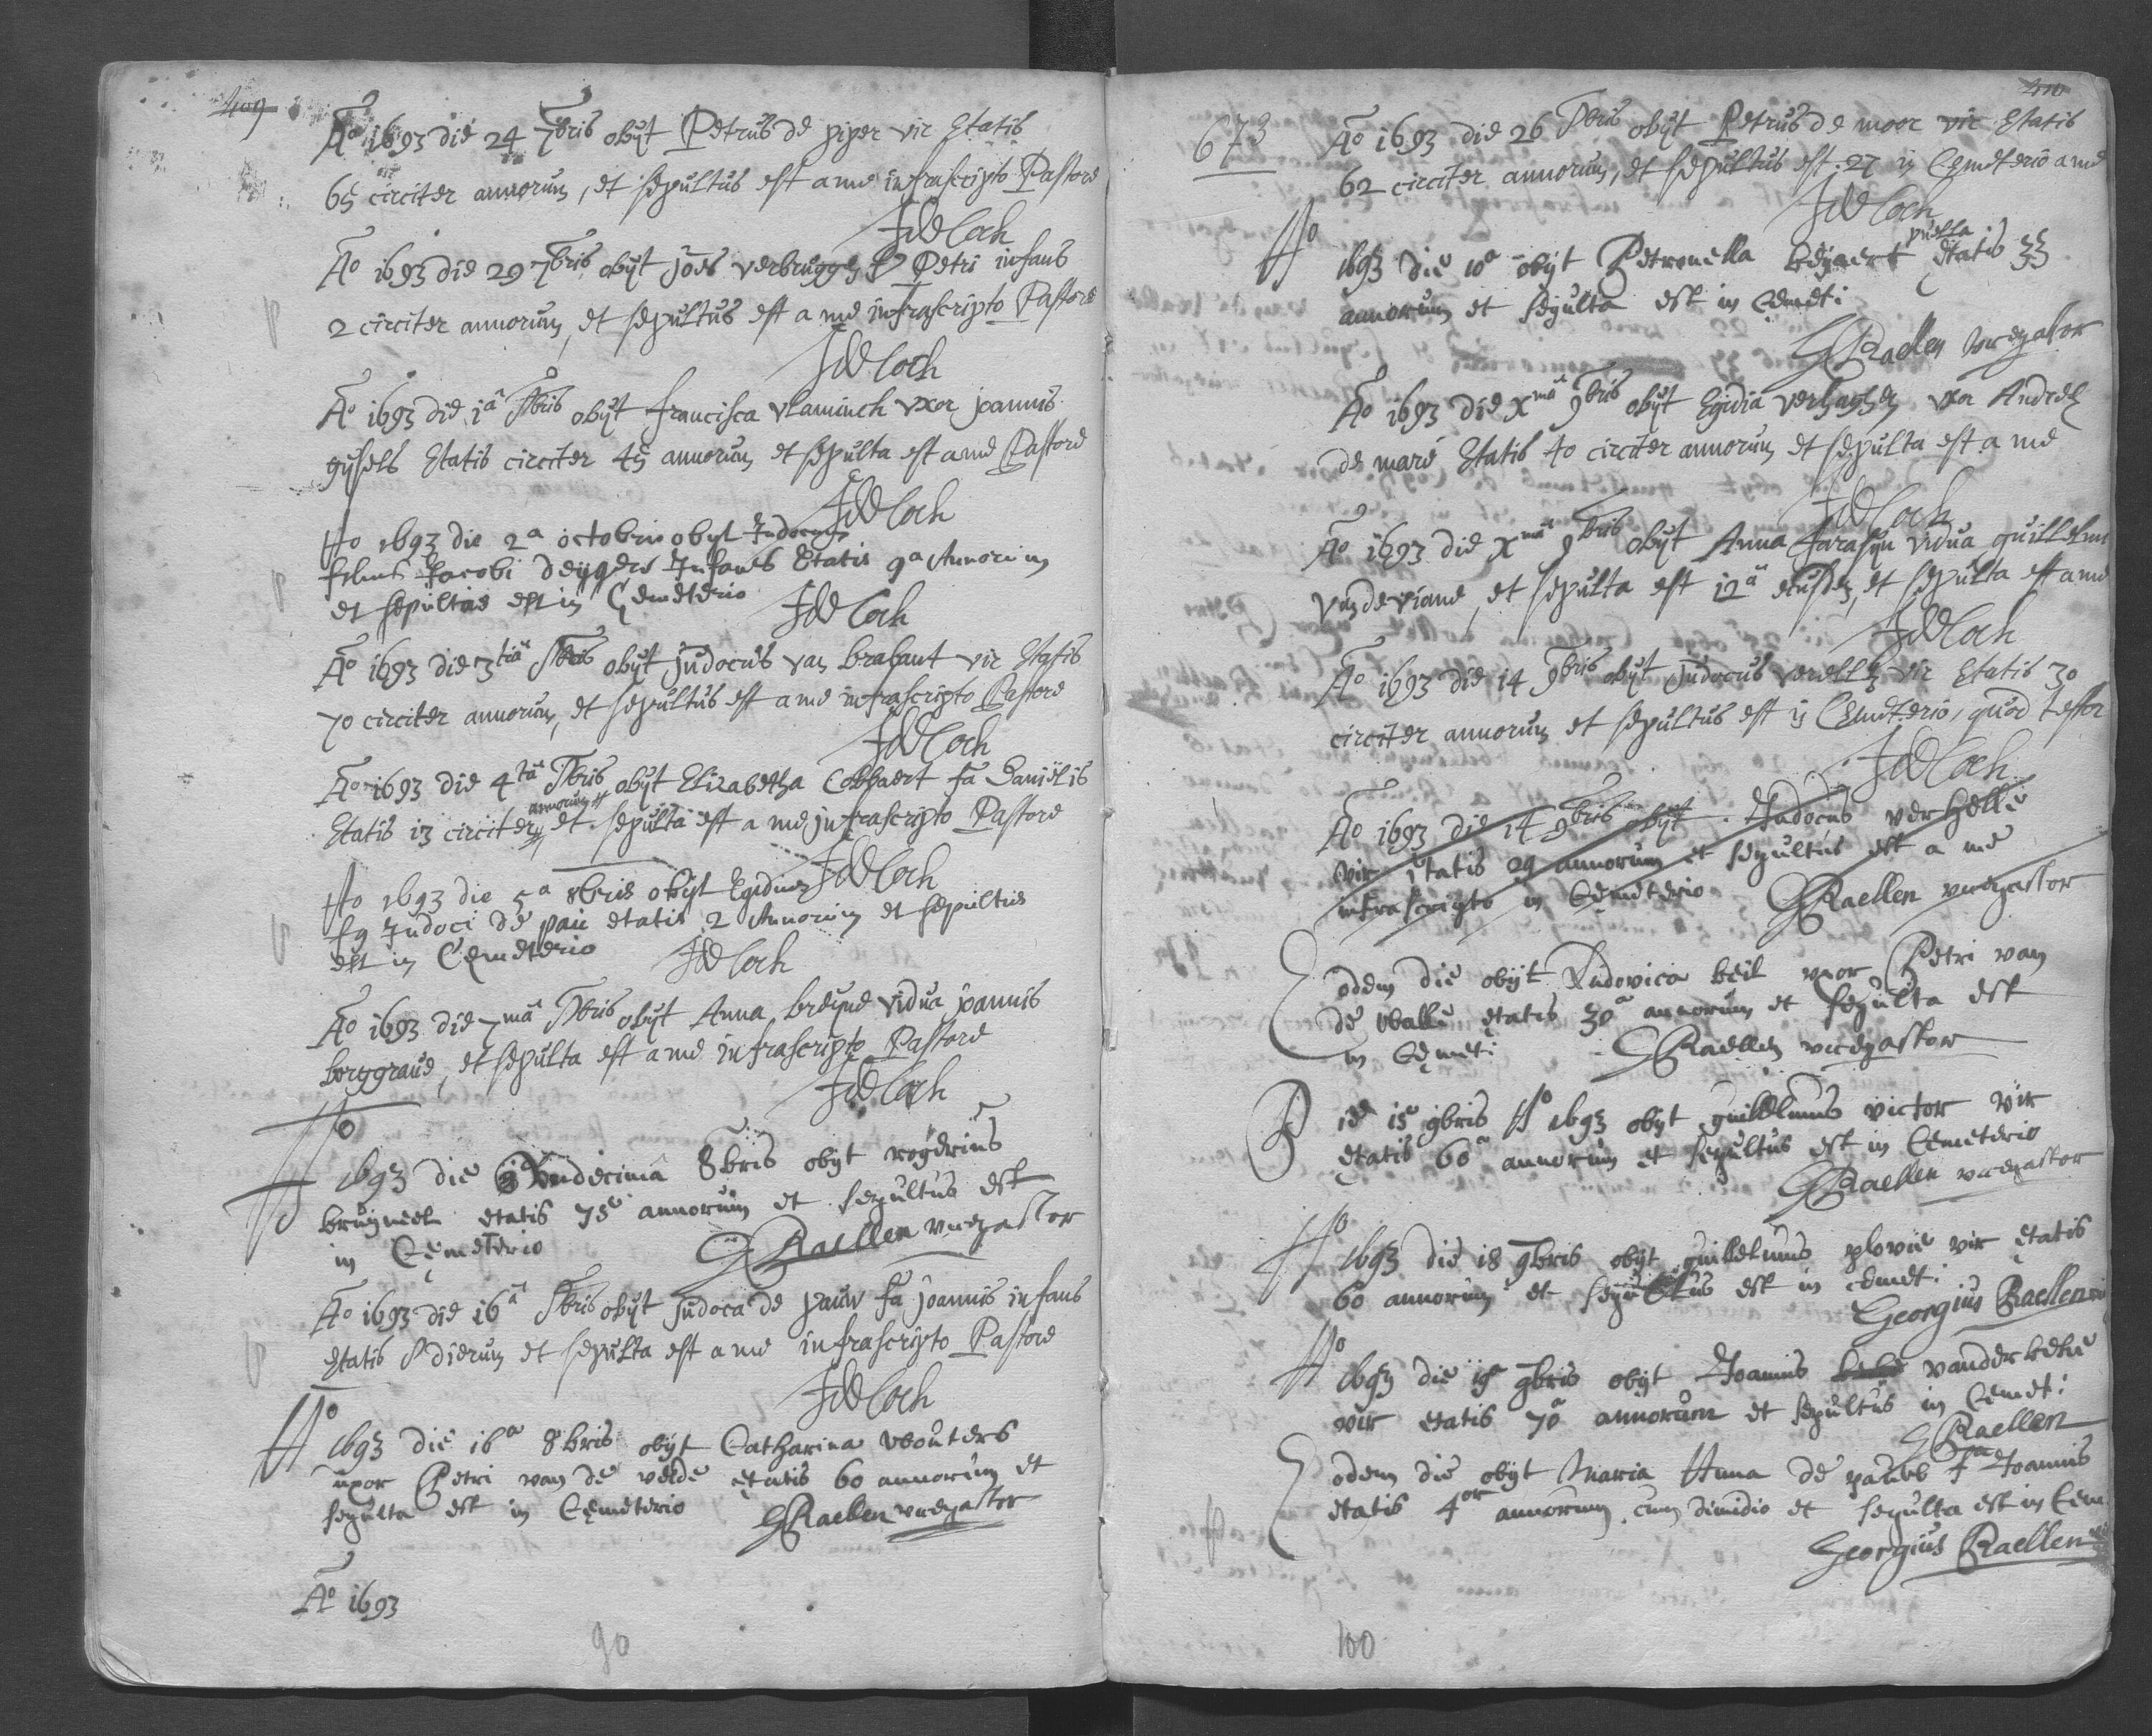 409
Ao 1693 die 24 7bris obyt Petrus de piper vir Etatis
65 circiter annorum, et sepultus est a me infrascripto Pastore
Ao 1693 die 29 7bris obyt joes verbruggen Petri infans
2 circiter annorum, et sepultus est a me infrascripto Pastore
Ao 1693 die 1a 8bris obyt francisca vlaminck vxor joannis
gysels Etatis circiter 45 annorum et sepulta est a me Pastore
Ao 1693 die 2a octobris obyt Judocus
filius Jacobi Infans Etatis 9a Annorum
et sepultus est in Cemeterio
Ao 1693 die 3tia 8bris obyt judocus van brabant vir Etatis
70 circiter annorum, et sepultus est a me infrascripto Pastore
Ao 1693 die 4ta 8bris obyt Elisabetha Cobbaert fa Danielis
Etatis 13 circiter annorum et sepulta est a me infrascripto Pastore
Ao 1693 die 5a 8bris obyt Egidius
Judoci de etatis 2 Annorum et sepultus
est in Cemeterio
Ao 1693 die 7ma 8bris obyt Anna breyne vidua joannis
borggrave, et sepulta est a me infrascripto Pastore
Ao
1693 die vndecima 8bris obyt rogerius
bruyneel etatis 75 annorum et sepultus est
in Cemeterio GRaellen vicepastor
Ao 1693 die 16a 8bris obyt judoca de pauw fa joannis infans
etatis 8 dierum et sepulta est a me infrascripto Pastore
Ao 1693 die 16a 8bris obyt Catharina wouters
uxor Petri van de velde etatis 60 annorum et
sepulta est in Cemeterio GRaellen vicepastor
Ao 1693
90
673
Ao 1693 die 26 8bris obyt Petrus de moor vir Etatis
62 circiter annorum, et sepultus est 27 in Cemeterio a me
Ao 1693 die 10a obyt Petronella puella etatis 33
annorum et sepulta est in Cemet:
GRaellen vicepastor
Ao 1693 die xma 9bris obyt Egidia verhaghen vxor Andreę
de maré Etatis 40 circiter annorum et sepulta est a me
Ao 1693 die xma 9bris obyt Anna farasyn vidua guillelmi
van de viane, et sepulta est 12a eiusdem, et sepulta est a me
Ao 1693 die 14 9bris obyt judocus verellen vir Etatis 30
circiter annorum et sepultus est in Cemeterio, quod testor
Ao 1693 die 14 9bris obyt Judocus verhelle
vir etatis 29 annorum et sepultus est a me
infrascripto in Cemeterio GRaellen vicepastor
Eodem die obyt Ludovica keil uxor Petri van
de walle etatis 30a annorum et sepulta est
in Cemet: GRaellen vicepastor
Die 15 9bris Ao 1693 obyt guillelmus victor vir
etatis 60a annorum et sepultus est in Cemeterio
GRaellen vicepastor
Ao 1693 die 18 9bris obyt guillelmus plovie vir etatis
60 annorum et sepultus est in cemet:
Georgius Raellen
Ao 1693 die 19 9bris obyt Joannis vander
vir etatis 70a annorum et sepultus in Cemet:
GRaellen
Eodem die obyt Maria Anna de pauw fa Joannis
etatis 4or annorum cum dimidio et sepulta est in Cem
Georgius Raellen
100